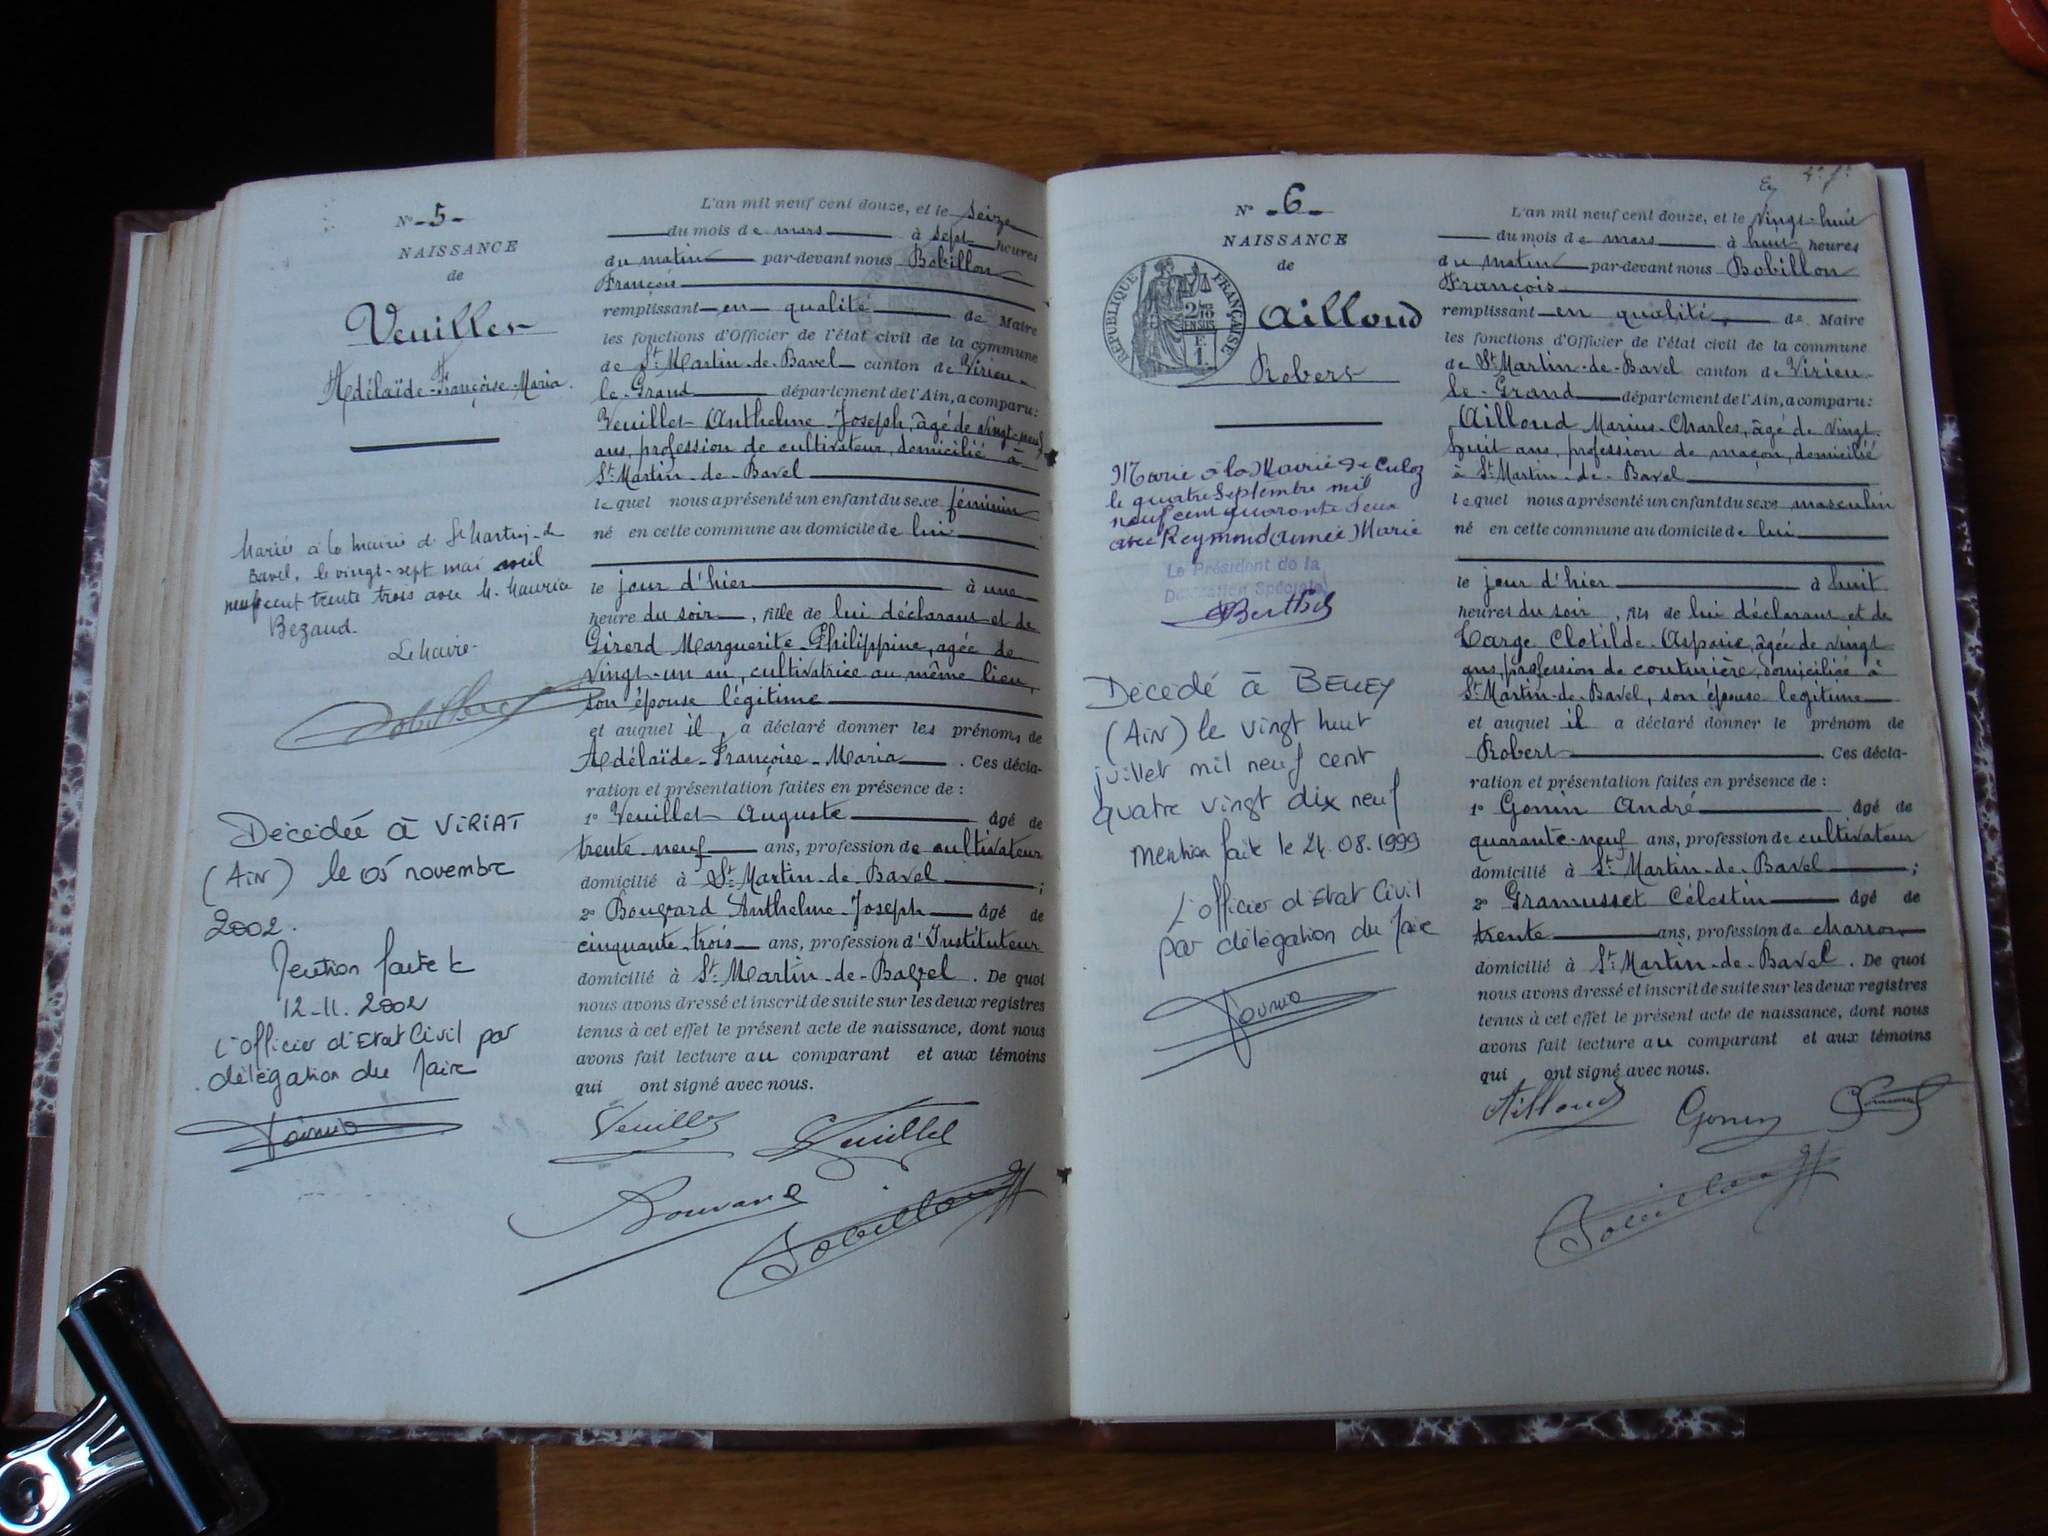 N° - 5 -
NAISSANCE
de
Veuillet
Adélaïde-Françoise-Maria.
Mariée à la mairie de St Martin-de
Bavel, le vingt-sept mai mil
neuf cent trente trois avec M. Maurice
Bezaud.
Le Maire
Décédée à VIRIAT
(Ain) le 05 novembre
2002.
Mention faite le
12-11-2002
L'officier d'Etat Civil par
délégation du Maire
L'an mil neuf cent douze, et le seize
du mois de mars à sept heures
du matin par-devant nous Bobillon
François
remplissant en qualité de Maire
les fonctions d'Officier de l'état civil de la commune
de St Martin-de-Bavel canton de Virieu-
le-Grand département de l'Ain, a comparu:
Veuillet Anthelme Joseph, âgé de vingt-neuf
ans, profession de cultivateur, domicilié à
St Martin-de-Bavel
lequel nous a présenté un enfant du sexe féminin
né en cette commune au domicile de lui
le jour d'hier à une
heure du soir, fille de lui déclarant et de
Girerd Marguerite Philippine, agée de
vingt-un an, cultivatrice au même lieu,
son épouse légitime
et auquel il a déclaré donner les prénoms de
Adélaïde-Françoise-Maria. Ces décla-
ration et présentation faites en présence de :
1° Veuillet Auguste âgé de
trente-neuf ans, profession de cultivateur
domicilié à St Martin-de-Bavel ;
2° Bouvard Anthelme-Joseph âgé de
cinquante-trois ans, profession d'Instituteur
domicilié à St Martin-de-Bavel. De quoi
nous avons dressé et inscrit de suite sur les deux registres
tenus à cet effet le présent acte de naissance, dont nous
avons fait lecture au comparant et aux témoins
qui ont signé avec nous.
Veuillet Veuillet
Bouvard
Bobillon
N° - 6 -
NAISSANCE
de
RÉPUBLIQUE FRANÇAISE
Ailloud
Robert
Marié à la Mairie de Culoz
le quatre Septembre mil
neuf cent quarante deux
avec Reymond Aimée Marie
Le Président de la
Délégation Spéciale
Décédé à BELLEY
(Ain) le vingt huit
juillet mil neuf cent
quatre vingt dix neuf
Mention faite le 24.08.1999
L'officier d'Etat Civil
par délégation du Maire
L'an mil neuf cent douze, et le vingt-huit
du mois de mars à huit heures
du matin par-devant nous Bobillon
François
remplissant en qualité de Maire
les fonctions d'Officier de l'état civil de la commune
de St Martin-de-Bavel canton de Virieu-
le-Grand département de l'Ain, a comparu:
Ailloud Marius-Charles, âgé de vingt-
huit ans, profession de maçon, domicilié
à St Martin-de-Bavel
lequel nous a présenté un enfant du sexe masculin
né en cette commune au domicile de lui
le jour d'hier à huit
heures du soir, fils de lui déclarant et de
Targe Clotilde Aspasie, âgée de vingt
ans, profession de couturière, domiciliée à
St Martin-de-Bavel, son épouse légitime
et auquel il a déclaré donner le prénom de
Robert. Ces décla-
ration et présentation faites en présence de :
1° Gonin André âgé de
quarante-neuf ans, profession de cultivateur
domicilié à St Martin-de-Bavel ;
2° Gramusset Célestin âgé de
trente ans, profession de charron
domicilié à St Martin-de-Bavel. De quoi
nous avons dressé et inscrit de suite sur les deux registres
tenus à cet effet le présent acte de naissance, dont nous
avons fait lecture au comparant et aux témoins
qui ont signé avec nous.
Ailloud Gonin
Bobillon